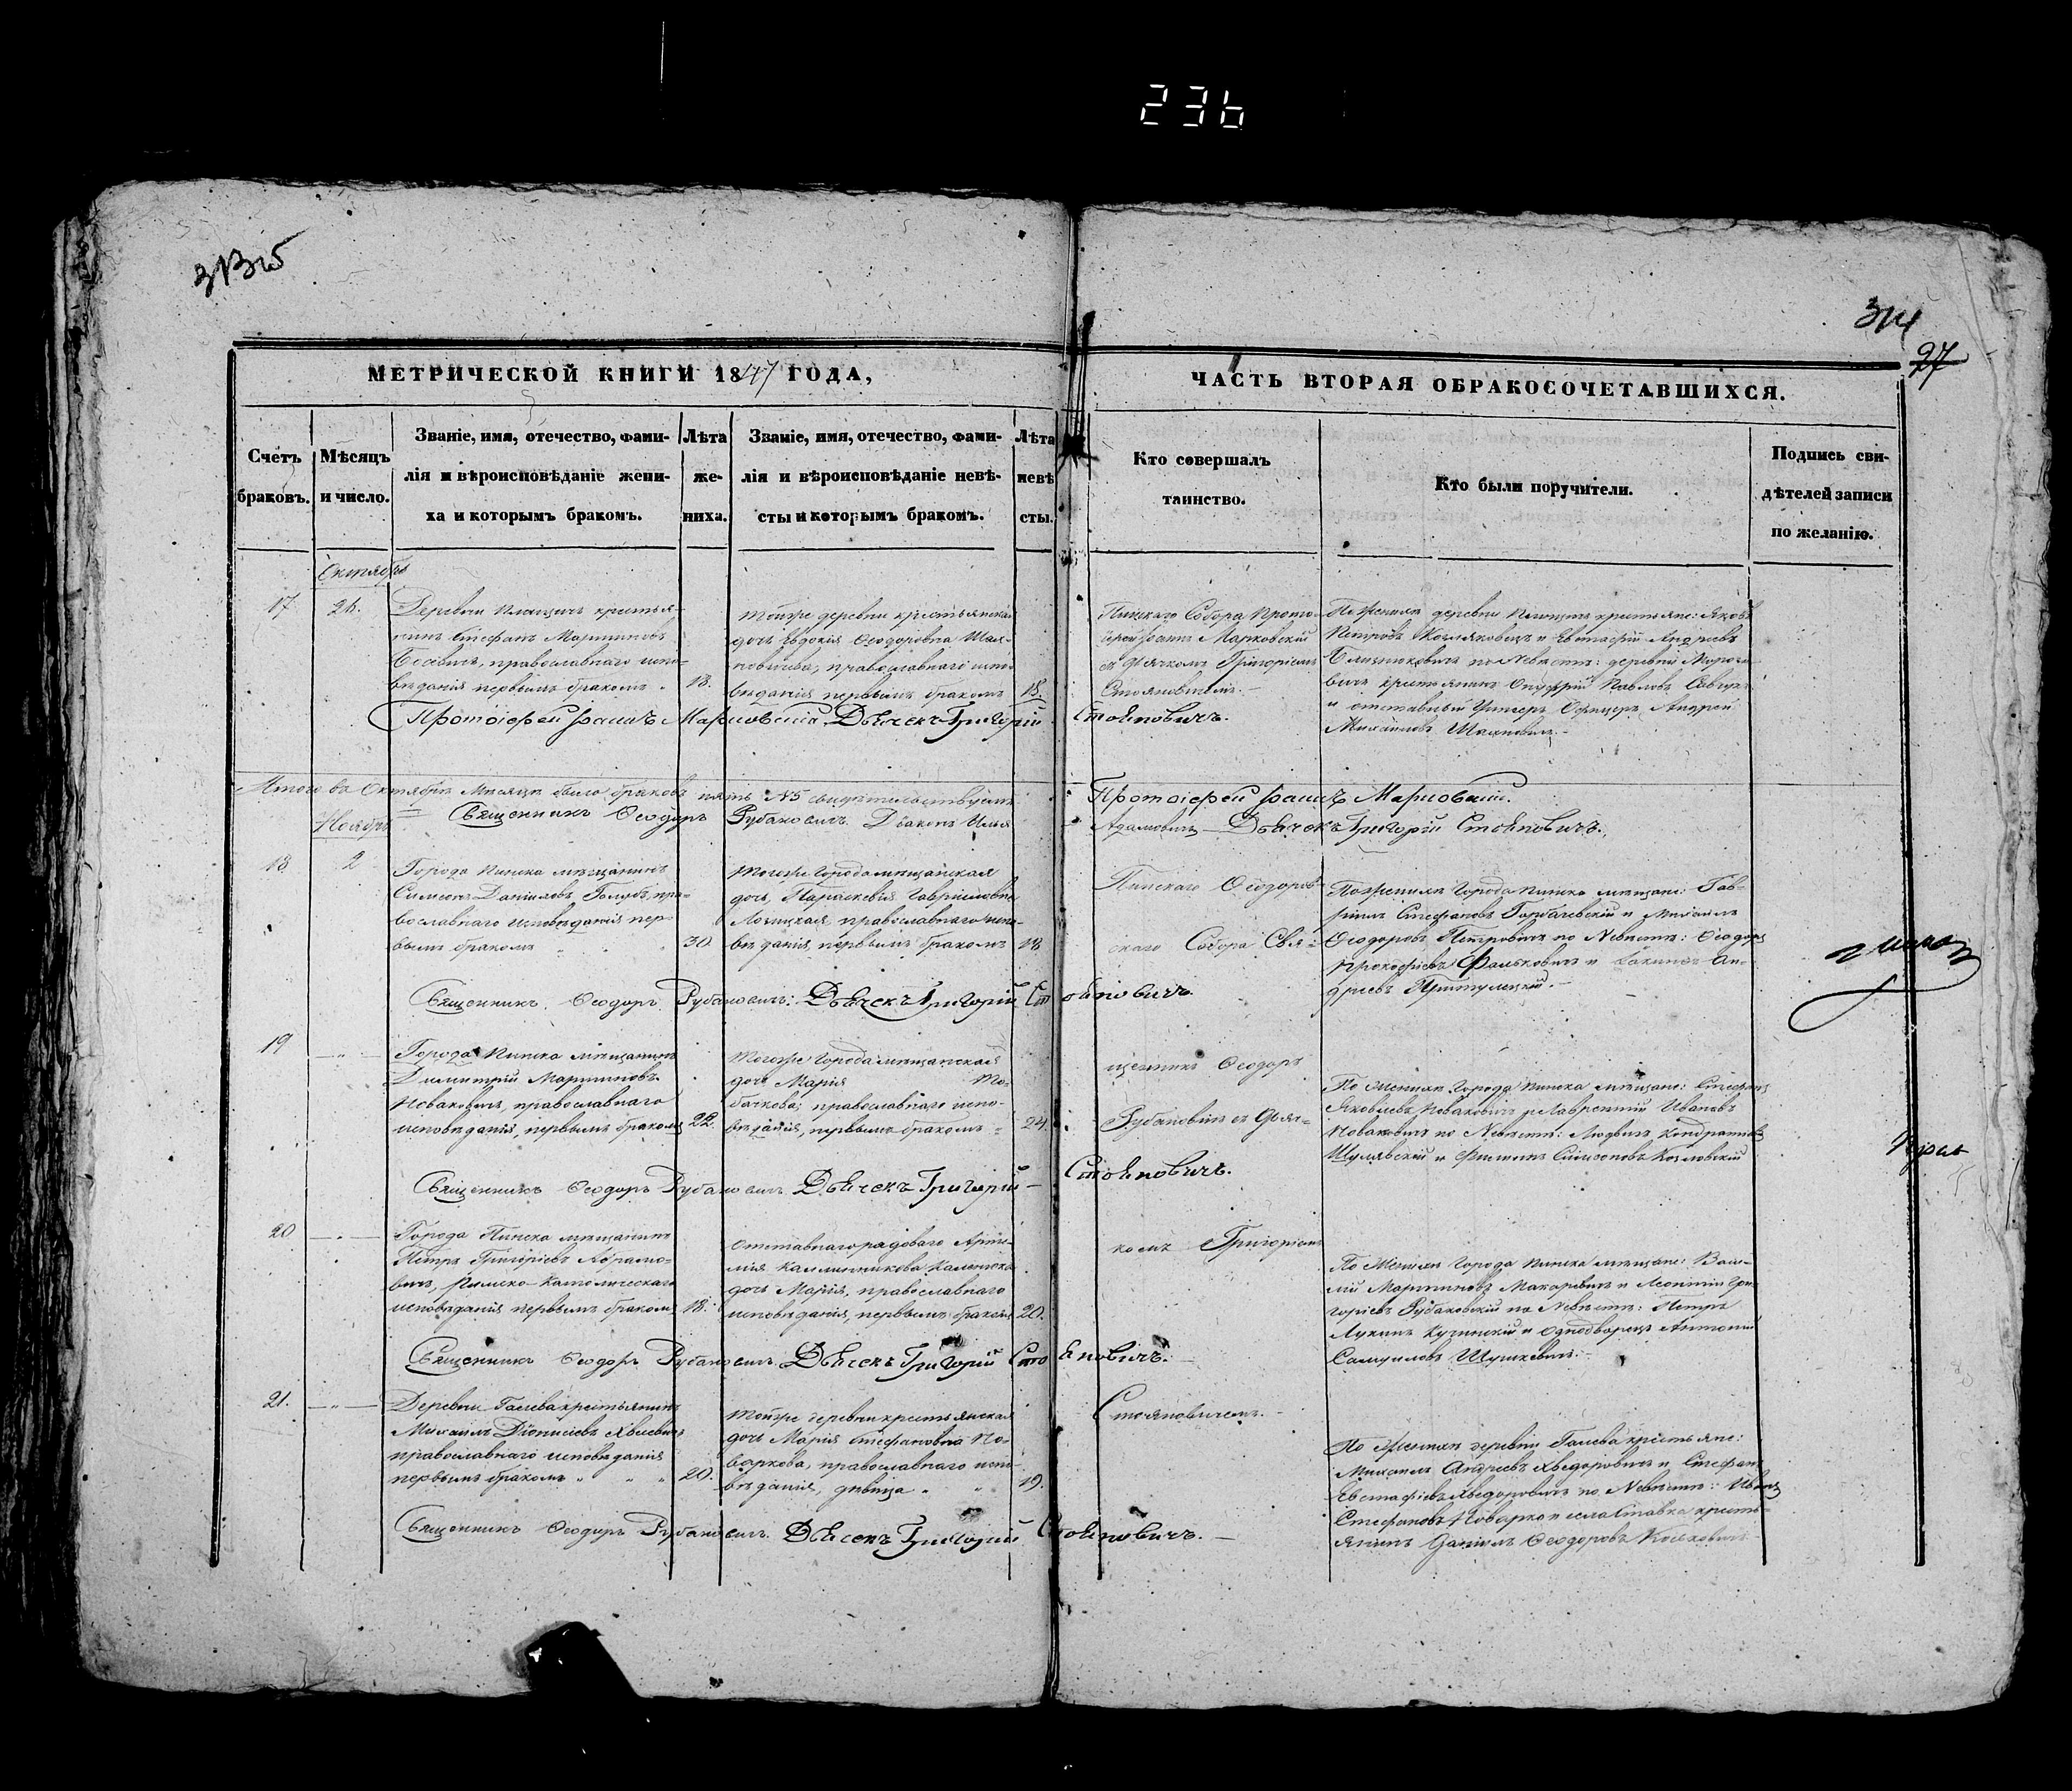 236
313 об
314
27
МЕТРИЧЕСКОЙ КНИГИ 1847 ГОДА,
ЧАСТЬ ВТОРАЯ ОБРАКОСОЧЕТАВШИХСЯ.
Счетъ
браковъ.
Мѣсяцъ
и число.
Званіе, имя, отечество, фами-
лія и вѣроисповѣданіе жени-
ха и которымъ бракомъ.
Лѣта
же-
ниха.
Званіе, имя, отечество, фами-
лія и вѣроисповѣданіе невѣ-
сты и которымъ бракомъ.
Лѣта
невѣ
сты.
Кто совершалъ
таинство.
Кто были поручители.
Подпись сви-
дѣтелей записи
по желанію.
Октябрь
17
Деревни крестья-
нинъ Стефанъ Мартиновъ
православнаго испо-
вѣданія первымъ бракомъ
18.
Тойже деревни крестьянская
дочь Евдокія Ѳеодоровна
православнаго испо-
вѣданія первымъ бракомъ
18.
Пинскаго Собора Прото-
іерей Марковскій
съ дьячкомъ Григоріемъ
Стояновичемъ.
По Женихѣ деревни крестьяне: Яковъ
Петровъ и Евстафій Андреевъ
по Невѣстѣ: деревни
крестьянинъ Онуфрій Павловъ
и отставный Унтеръ Офицеръ Андрей
Михайловъ
Протоіерей Марковскій Дьячекъ Григорій Стояновичъ.
Итого въ Октябрѣ Мѣсяцѣ было браковъ пять №5 свидѣтельствуемъ
Протоіерей Марковскій.
Ноябрь
Священникъ Ѳеодоръ Рубановичъ. Дьяконъ Илья
Адамовичъ Дьячекъ Григорій Стояновичъ.
18
2
Города Пинска мѣщанинъ
Симеонъ Даніиловъ Голубъ, пра-
вославнаго исповѣданія пер-
вымъ бракомъ
30
Тогоже города мѣщанская
дочь, Параскевія Гавріиловна
православнаго испо-
вѣданія, первымъ бракомъ
18
Пинскаго Ѳеодоров-
скаго Собора Свя-
По Женихѣ города Пинска мѣщане: Гав-
ріилъ Стефановъ Горбачевскій и Михаилъ
Ѳеодоровъ Петровичъ по Невѣстѣ: Ѳеодоръ
Прокофіевъ Фалькевичъ и Ан-
дреевъ
Священникъ Ѳеодоръ Рубановичъ: Дьячекъ Григорій Стояновичъ.
19
Города Пинска мѣщанинъ
Димитрій Мартиновъ
Новаковичъ, православнаго
исповѣданія, первымъ бракомъ
22.
Тогоже города мѣщанская
дочь Марія
православнаго испо-
вѣданія, первымъ бракомъ
24.
щенникъ Ѳеодоръ
Рубановичъ съ Дьяч-
По Женихѣ города Пинска мѣщане: Стефанъ
Яковлевъ Новаковичъ и Лаврентій Ивановъ
Новаковичъ по Невѣстѣ: Людвигъ Кондратовъ
и Филипъ Симеоновъ Козловскій
Священникъ Ѳеодоръ Рубановичъ Дьячекъ Григорій Стояновичъ.
20
Города Пинска мѣщанинъ
Петръ Григоріевъ Абрамо-
вичъ, Римско-Католическаго
исповѣданія первымъ бракомъ
18.
Отставнаго рядоваго Арте-
мія
дочь Марія, православнаго
исповѣданія, первымъ бракомъ
20.
комъ Григоріемъ
По Женихѣ города Пинска мѣщане: Васи-
лій Мартиновъ Макаревичъ и Леонтій Гри-
горіевъ Рубаковскій по Невѣстѣ: Петръ
Лукинъ Кучинскій и Однодворецъ Антоній
Самуиловъ Шушкевичъ.
Священникъ Ѳеодоръ Рубановичъ. Дьячекъ Григорій Стояновичъ.
21.
Деревни Галева крестьянинъ
Михаилъ Діонисіевъ
православнаго исповѣданія
первымъ бракомъ
20.
Тойже деревни крестьянская
дочь Марія Стефановна По-
варкова, православнаго испо-
вѣданія, дѣвица
19.
Стояновичемъ.
По Женихѣ деревни Галева крестьяне:
Михаилъ Андреевъ Хведоровичъ и Стефанъ
Евстафіевъ Хведоровичъ по Невѣстѣ: Иванъ
Стефановъ Поварко и села Ставка кресть-
янинъ Даніилъ Ѳеодоровъ
Священникъ Ѳеодоръ Рубановичъ. Дьячекъ Григорій Стояновичъ.